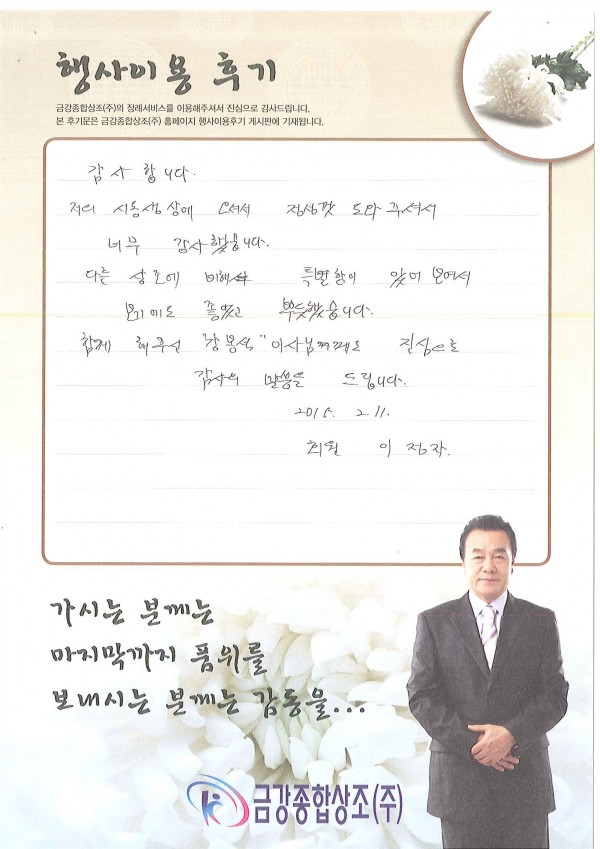 행사이용 후기
금강종합상조(주)의 장례서비스를 이용해주셔서 진심으로 감사드립니다.
본 후기문은 금강종합상조(주) 홈페이지 행사이용후기 게시판에 기재됩니다.
감사합니다.
저의 시동생상에 오셔서 정성껏 도와 주셔서
너무 감사했읍니다.
다른 상조에 비해 특별함이 있어 보여서
보기에도 좋았고 뿌듯했습니다.
함께 해주신 "강봉석" 이사님께도 진심으로
감사의 말씀을 드립니다.
2015. 2.11.
회원 이정자.
가시는 분께는
마지막까지 품위를
보내시는 분께는 감동을...
금강종합상조(주)